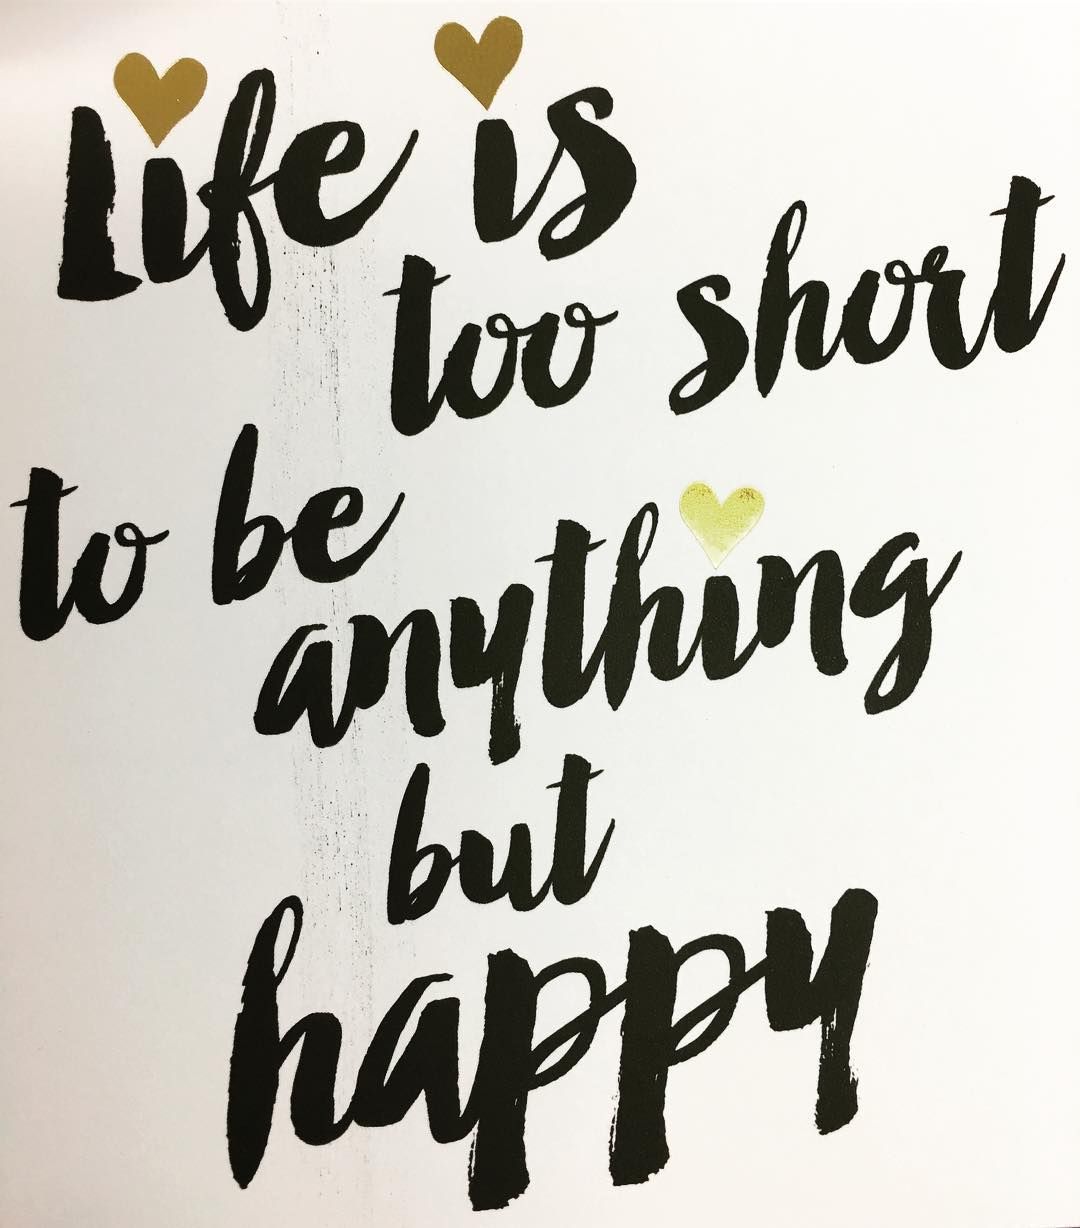 Life is
too short
to be
anything
but
happy